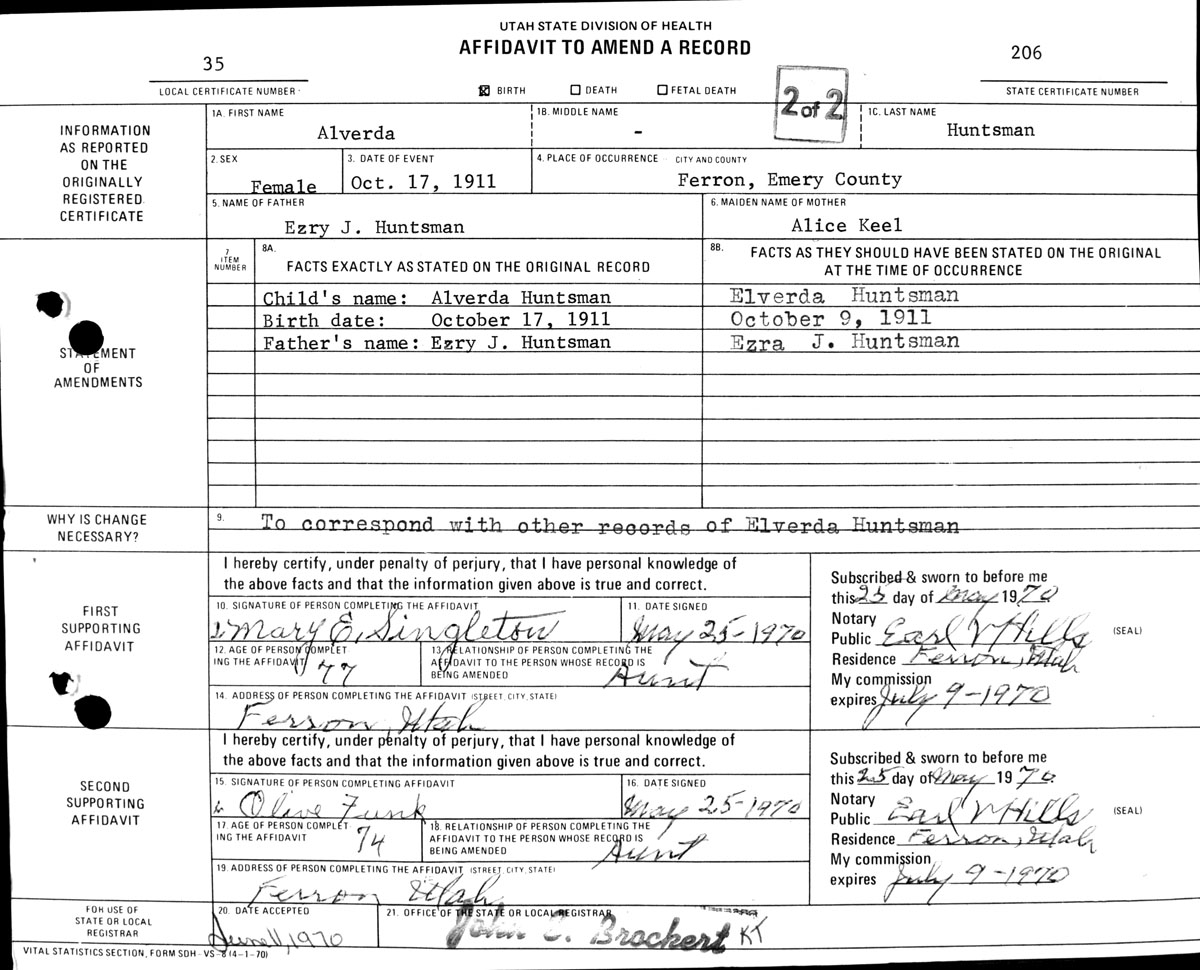 UTAH STATE DIVISION OF HEALTH
AFFIDAVIT TO AMEND A RECORD
35
206
LOCAL CERTIFICATE NUMBER
☒ BIRTH ☐ DEATH ☐ FETAL DEATH
STATE CERTIFICATE NUMBER
2 of 2
INFORMATION
AS REPORTED
ON THE
ORIGINALLY
REGISTERED
CERTIFICATE
1A. FIRST NAME
Alverda
1B. MIDDLE NAME
-
1C. LAST NAME
Huntsman
2. SEX
Female
3. DATE OF EVENT
Oct. 17, 1911
4. PLACE OF OCCURRENCE CITY AND COUNTY
Ferron, Emery County
5. NAME OF FATHER
Ezry J. Huntsman
6. MAIDEN NAME OF MOTHER
Alice Keel
STATEMENT
OF
AMENDMENTS
7
ITEM
NUMBER
8A.
FACTS EXACTLY AS STATED ON THE ORIGINAL RECORD
8B. FACTS AS THEY SHOULD HAVE BEEN STATED ON THE ORIGINAL
AT THE TIME OF OCCURRENCE
Child's name: Alverda Huntsman Elverda Huntsman
Birth date: October 17, 1911 October 9, 1911
Father's name: Ezry J. Huntsman Ezra J. Huntsman
WHY IS CHANGE
NECESSARY?
9. To correspond with other records of Elverda Huntsman
FIRST
SUPPORTING
AFFIDAVIT
I hereby certify, under penalty of perjury, that I have personal knowledge of
the above facts and that the information given above is true and correct.
10. SIGNATURE OF PERSON COMPLETING THE AFFIDAVIT
Mary E. Singleton
11. DATE SIGNED
May 25-1970
12. AGE OF PERSON COMPLET
ING THE AFFIDAVIT 77
13. RELATIONSHIP OF PERSON COMPLETING THE
AFFIDAVIT TO THE PERSON WHOSE RECORD IS
BEING AMENDED Aunt
14. ADDRESS OF PERSON COMPLETING THE AFFIDAVIT (STREET, CITY, STATE)
Ferron, Utah
Subscribed & sworn to before me
this 25 day of May 1970
Notary
Public Earl V Hills (SEAL)
Residence Ferron, Utah
My commission
expires July 9-1970
SECOND
SUPPORTING
AFFIDAVIT
I hereby certify, under penalty of perjury, that I have personal knowledge of
the above facts and that the information given above is true and correct.
15. SIGNATURE OF PERSON COMPLETING AFFIDAVIT
Olive Funk
16. DATE SIGNED
May 25-1970
17. AGE OF PERSON COMPLET
ING THE AFFIDAVIT 74
18. RELATIONSHIP OF PERSON COMPLETING THE
AFFIDAVIT TO THE PERSON WHOSE RECORD IS
BEING AMENDED Aunt
19. ADDRESS OF PERSON COMPLETING THE AFFIDAVIT (STREET, CITY, STATE)
Ferron Utah
Subscribed & sworn to before me
this 25 day of May 1970
Notary
Public Earl V Hills (SEAL)
Residence Ferron, Utah
My commission
expires July 9-1970
FOR USE OF
STATE OR LOCAL
REGISTRAR
20. DATE ACCEPTED
June 11, 1970
21. OFFICE OF THE STATE OR LOCAL REGISTRAR
John E. Brockert KT
VITAL STATISTICS SECTION, FORM SDH - VS-8 (4-1-70)